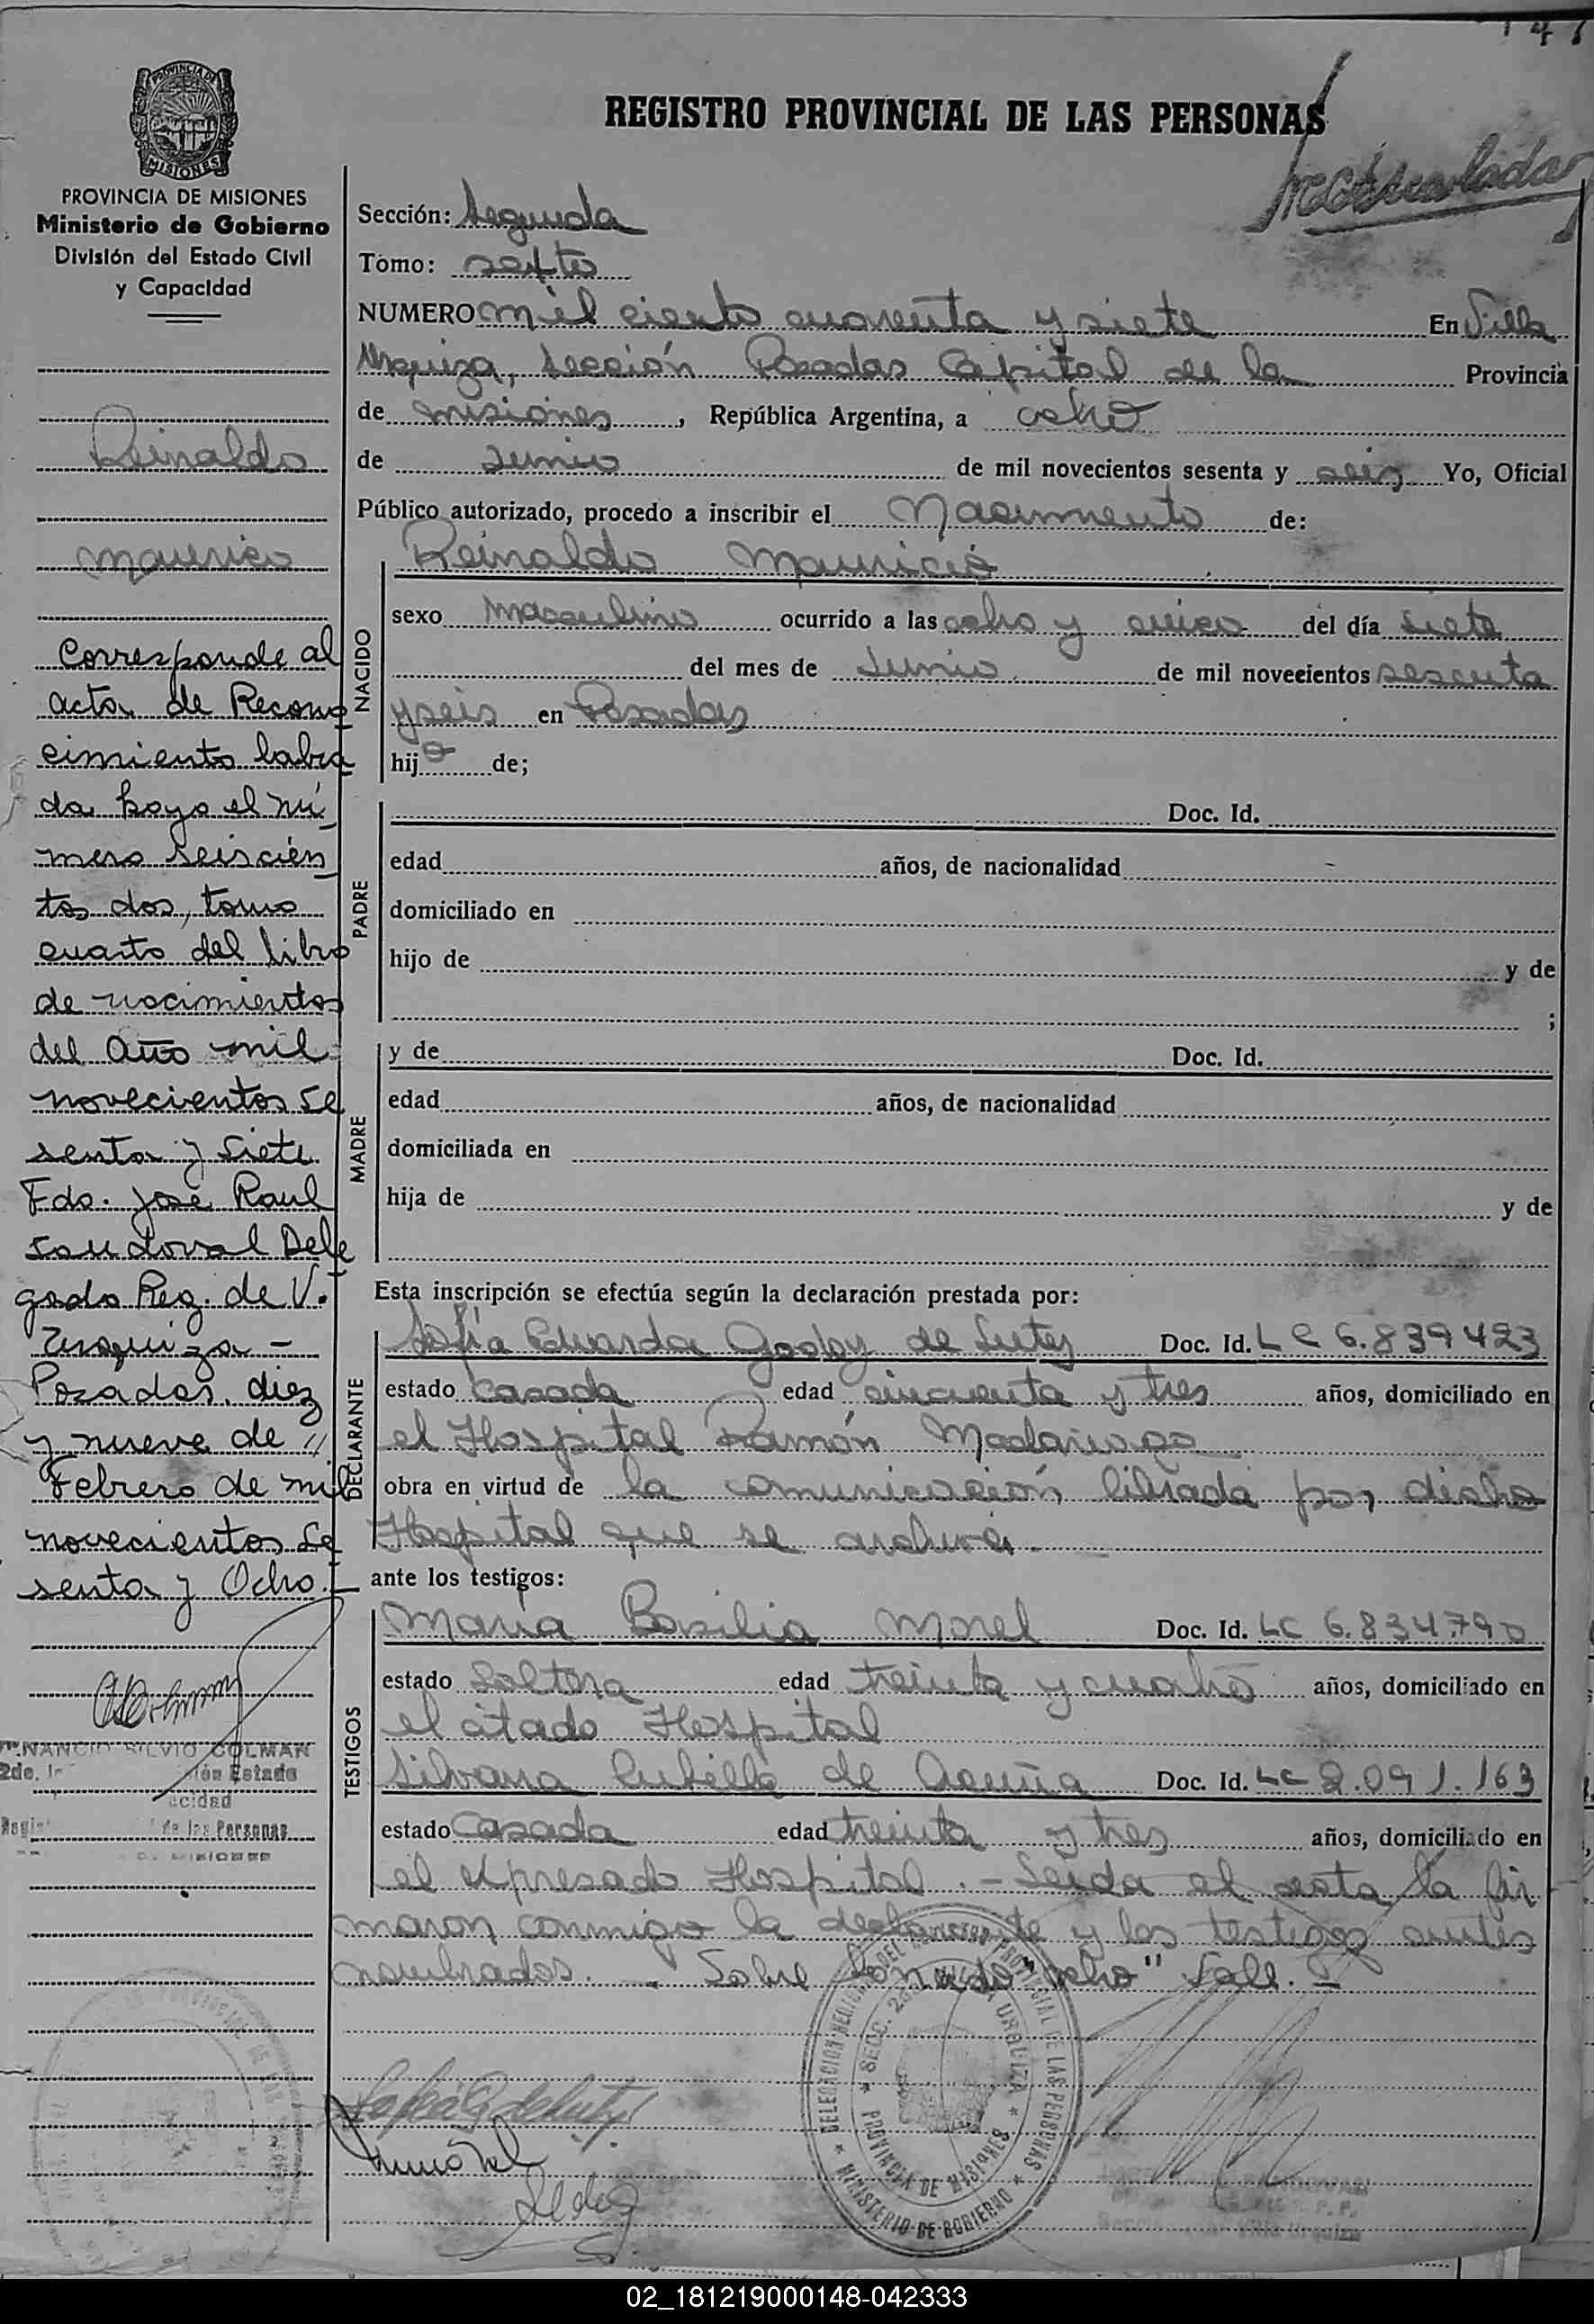 147
REGISTRO PROVINCIAL DE LAS PERSONAS
MISIONES
PROVINCIA DE MISIONES
Ministerio de Gobierno
División del Estado Civil
y Capacidad
Reinaldo
Mauricio
Corresponde al
acta de Recono
cimiento labra
da bajo el nú
mero seiscien
tos dos, tomo
cuarto del libro
de nacimientos
del año mil
novecientos se
senta y siete
Fdo. José Raul
Sandoval Dele
gado Reg. de V.
Urquiza -
Posadas, diez
y nueve de //
Febrero de mil
novecientos se
senta y Ocho.-
SILVIO COLMAN
Estado
de las Personas
Sección: Segunda
Tomo: sexto
NUMERO mil ciento cuarenta y siete En Villa
Urquiza, sección Posadas Capital de la Provincia
de misiones, República Argentina, a ocho
de Junio de mil novecientos sesenta y seis Yo, Oficial
Público autorizado, procedo a inscribir el Nacimiento de:
Reinaldo Mauricio
NACIDO
sexo masculino ocurrido a las ocho y cinco del día siete
del mes de Junio de mil novecientos sesenta
y seis en Posadas
hijo de;
PADRE
Doc. Id.
edad años, de nacionalidad
domiciliado en
hijo de y de
;
MADRE
y de Doc. Id.
edad años, de nacionalidad
domiciliada en
hija de y de
Esta inscripción se efectúa según la declaración prestada por:
DECLARANTE
Sofía Eduarda Godoy de Doc. Id. LC 6.839423
estado casada edad cincuenta y tres años, domiciliado en
el Hospital Ramón Madariaga
obra en virtud de la comunicación librada por dicho
Hospital que se archiva.-
ante los testigos:
TESTIGOS
María Basilia Morel Doc. Id. LC 6.834.790
estado Soltera edad treinta y cuatro años, domiciliado en
el citado Hospital
Silvana Cubilla de Acuña Doc. Id. LC 2.091.163
estado Casada edad treinta y tres años, domiciliado en
el expresado Hospital.- Leida el acta la fir
maron conmigo la declarante y los testigos antes
nombrados.- Sobre "ocho" Vale.-
DELEGACION DEL REGISTRO PROVINCIAL DE LAS PERSONAS
MINISTERIO DE GOBIERNO
SECC. 2da. VILLA URQUIZA
PROVINCIA DE MISIONES
02_181219000148-042333